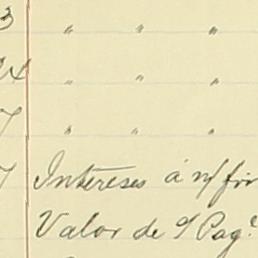 3 " " "
24 " " "
7 " " "
7 Intereses á n/
Valor de s/ Pag.e